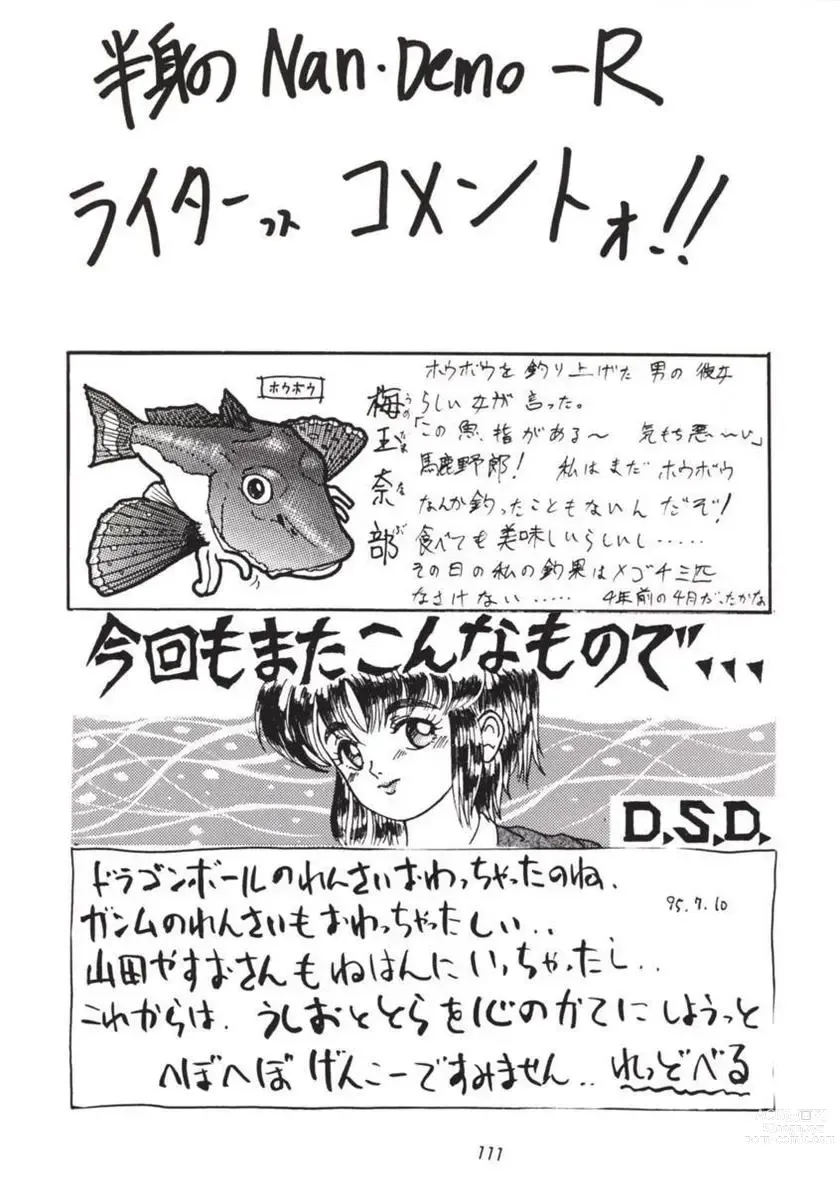 半身の Nan・Demo-R
ライターズ コメントォ!!
ホウボウ
梅玉奈部
うめ たま な べ
ホウボウを釣り上げた男の彼女
らしい女が言った。
「この魚、指がある〜 気もち悪〜い」
馬鹿野郎! 私はまだホウボウ
なんか釣ったこともないんだぞ!
食べても美味しいらしいし‥‥‥
その日の私の釣果はメゴチ三匹
なさけない‥‥‥ 4年前の4月だったかな
今回もまたこんなもので、、、
D.S.D.
ドラゴンボールのれんさいおわっちゃったのね、
95.7.10
ガンムのれんさいもおわっちゃったしい‥
山田やすおさんもねはんにいっちゃったし‥
これからは、うしおととらを心のかてにしようっと
へぼへぼげんこーですみません‥ れっどべる
111